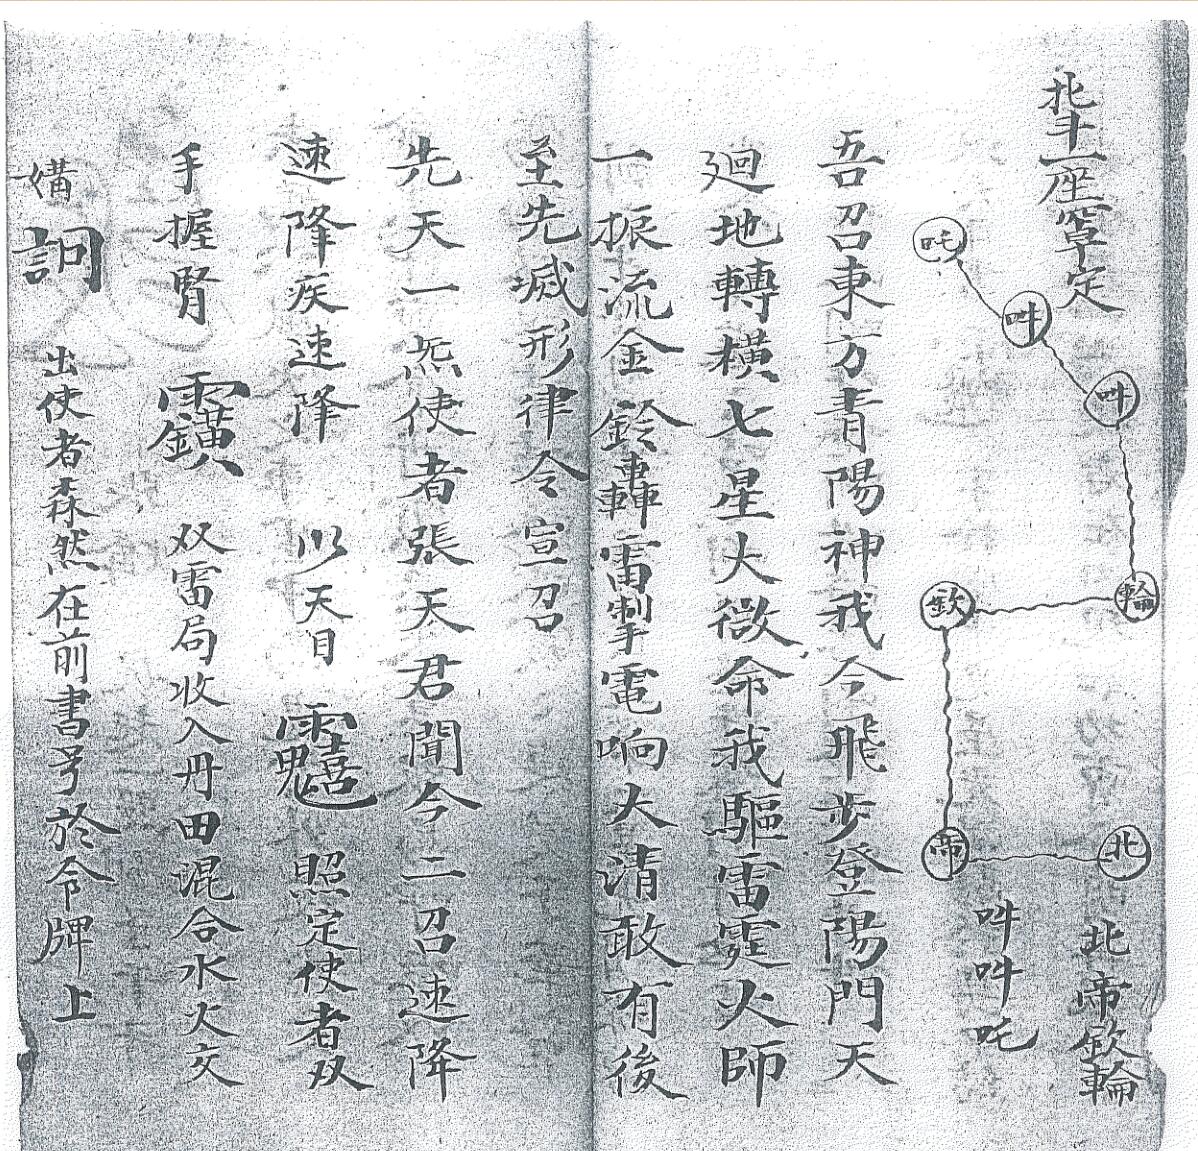 北斗一座罩定
吽
吽
吽
輪
欽
帝
北
北帝欽輪
吽吽吒
吾召東方青陽神我今飛步登陽門天
廻地轉橫七星大微命我驅雷霆火師
一振流金鈴轟雷掣電响大清敢有後
至先滅形律令宣召
先天一炁使者張天君聞今二召速降
速降疾速降 以天目 照定使者双
手握腎 双雷局收入丹田混合水火交
媾 出使者森然在前書号於令牌上